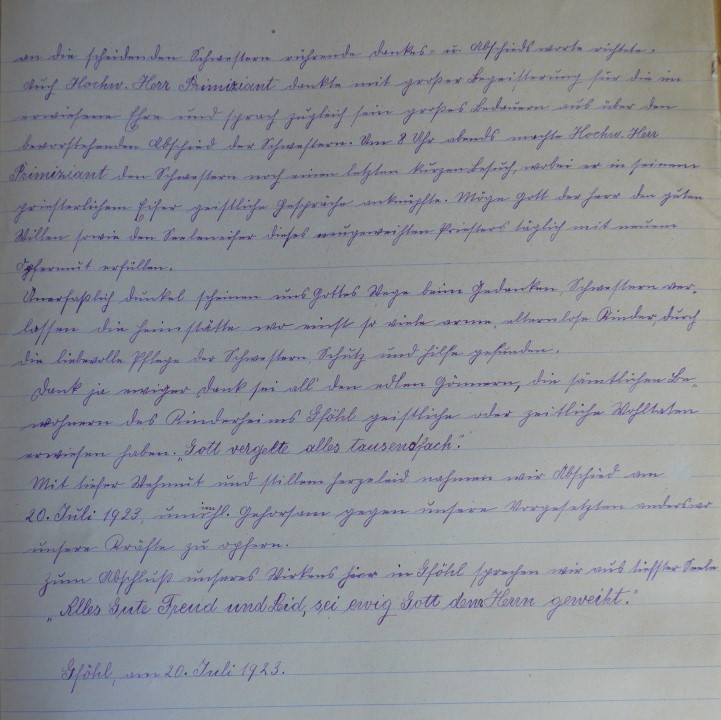 an die scheidenden Schwestern rührende Dankes- u. Abschiedsworte richtete.
Auch Hochw. Herr Primiziant dankte mit großer Begeisterung für die im
erwiesene Ehre und sprach zugleich sein großes Bedauern aus über den
bevorstehenden Abschied der Schwestern. Um 8 Uhr abends machte Hochw. Herr
Primiziant den Schwestern noch einen letzten kurzen Besuch, wobei er in seinem
priesterlichem Eifer geistliche Gespräche anknüpfte. Möge Gott der Herr den guten
Willen sowie den Seeleneifer dieses neugeweihten Priesters täglich mit neuem
Opfermut erfüllen.
Unerfaßlich dunkel scheinen uns Gottes Wege beim Gedanken, Schwestern ver-
lassen die Heimstätte wo einst so viele arme, elternlose Kinder, durch
die liebevolle Pflege der Schwestern Schutz und Hilfe gefunden.
Dank ja ewiger Dank sei all' den edlen Gönnern, die sämtlichen Be-
wohnern des Kinderheimes Gföhl geistliche oder zeitliche Wohltaten
erwiesen haben. „Gott vergelte alles tausendfach".
Mit tiefer Wehmut und stillem Herzeleid nahmen wir Abschied am
20. Juli 1923, um im hl. Gehorsam gegen unsere Vorgesetzten anderswo
unsere Kräfte zu opfern.
Zum Abschluß unseres Wirkens hier in Gföhl sprechen wir aus tiefster Seele
„Alles Gute Freud und Leid, sei ewig Gott dem Herrn geweiht."
Gföhl, am 20. Juli 1923.